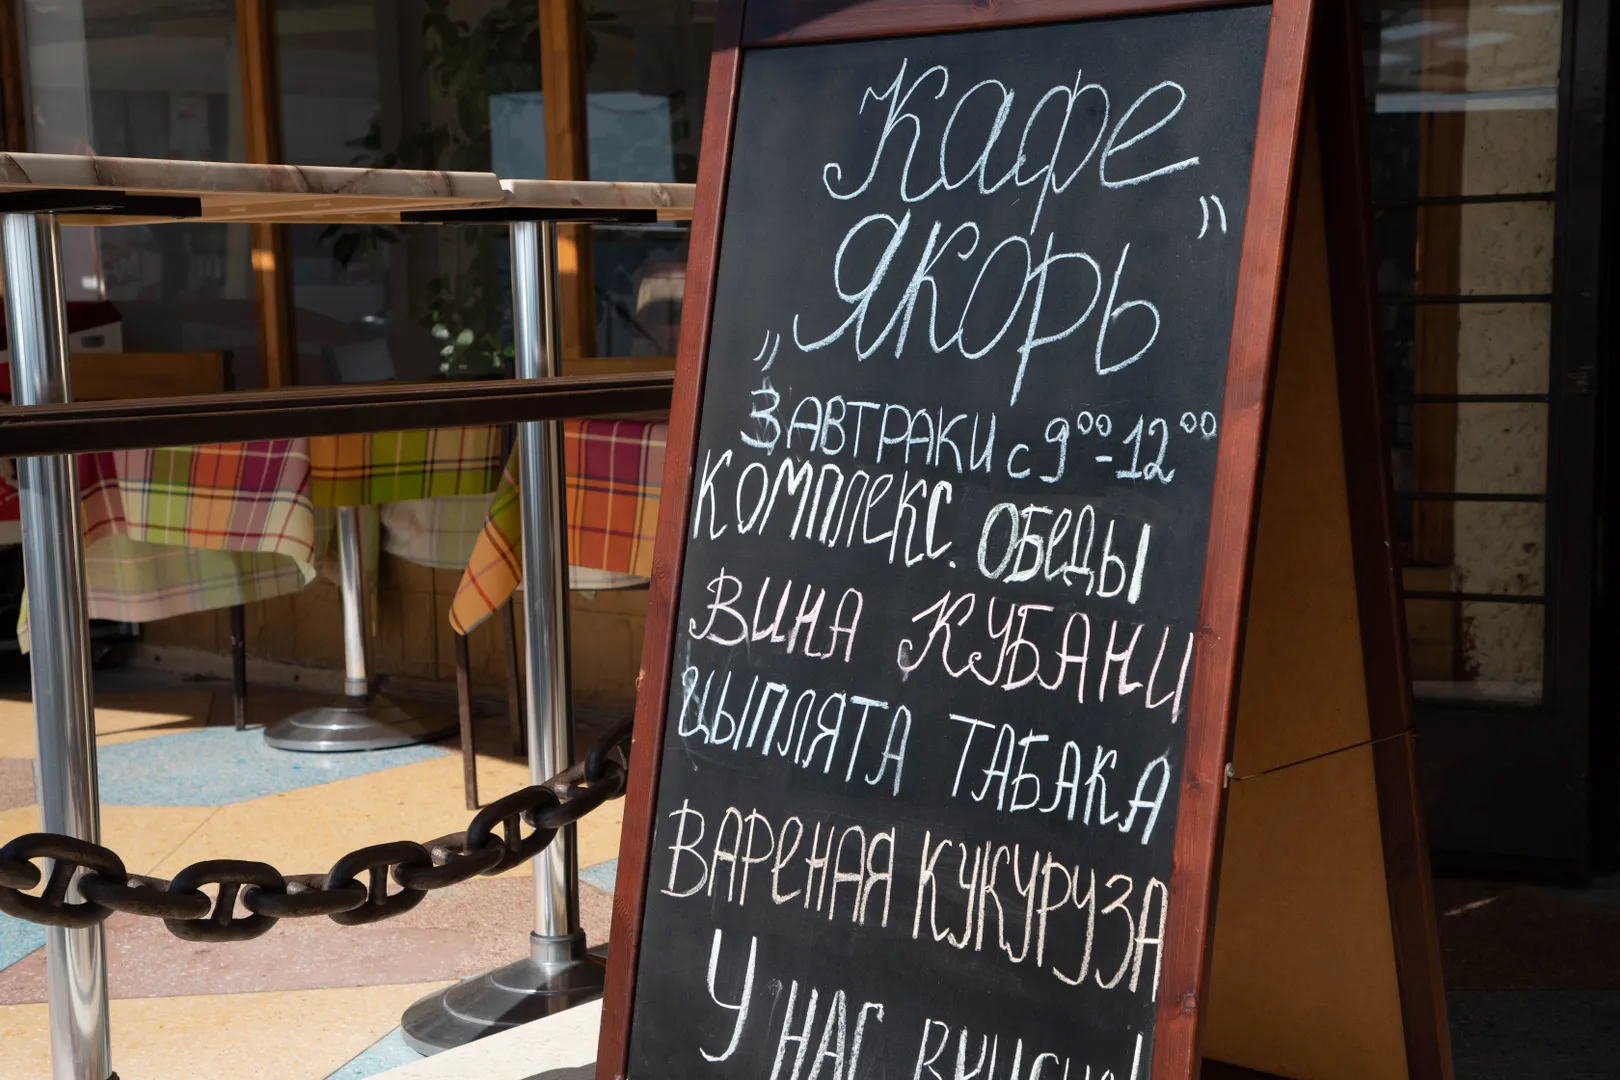 Кафе
„Якорь”
ЗАВТРАКИ с 9⁰⁰-12⁰⁰
КОМПЛЕКС. ОБЕДЫ
ВИНА КУБАНИ
ЦЫПЛЯТА ТАБАКА
ВАРЕНАЯ КУКУРУЗА
У НАС ВКУСНО!